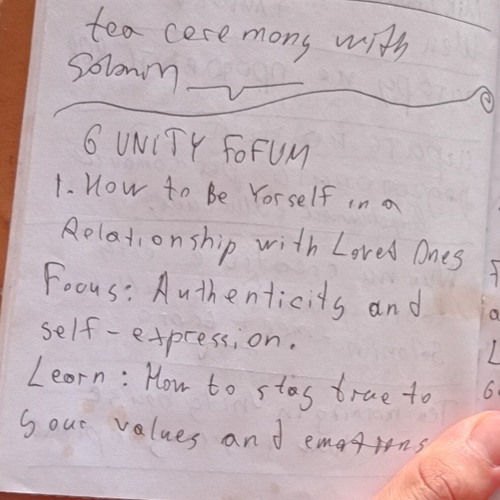 tea ceremony with
Solomin
6 UNITY FOFUM
1. How to Be Yorself in a
Relationship with Loved Ones
Focus: Authenticity and
self-expression.
Learn: How to stay true to
your values and emotions